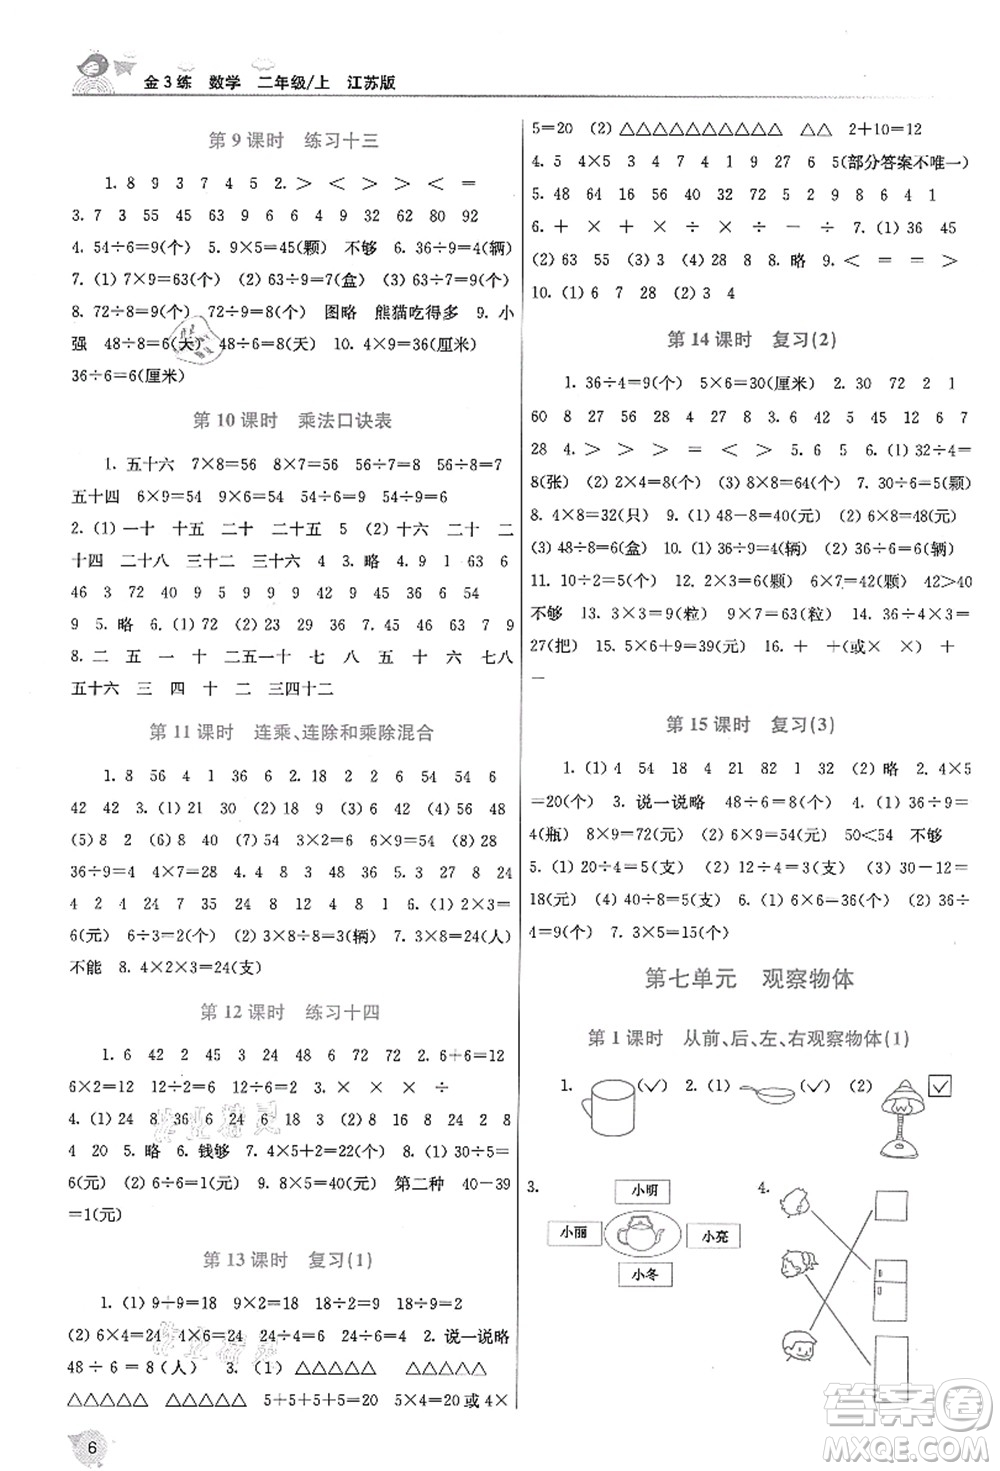 金3练 数学 二年级/上 江苏版
第9课时 练习十三
1. 8 9 3 7 4 5 2. > < > > < =
3. 7 3 55 45 6 4 9 32 62 80 92
4. 54÷6=9(个) 5. 9×5=45(颗) 不够 6. 36÷9=4(辆)
7. (1) 7×9=63(个) (2) 63÷9=7(盒) (3) 63÷7=9(个)
8. 72÷8=9(个) 72÷9=8(个) 图略 熊猫吃得多 9. 小
强 48÷8=6(天) 48÷6=8(天) 10. 4×9=36(厘米)
36÷6=6(厘米)
第10课时 乘法口诀表
1. 五十六 7×8=56 8×7=56 56÷7=8 56÷8=7
五十四 6×9=54 9×6=54 54÷6=9 54÷9=6
2. (1) 一十 十五 二十 二十五 5 (2) 十六 二十 二
十四 二十八 三十二 三十六 4 3. 略 4. 1 63 6
45 3 72 40 9 81 8 6 36 56 48 54
9 5. 略 6. (1) 72 (2) 23 29 36 7. 45 63 7 9
8. 二 五 一 十 二五一十 七 八 五 十 六 七八
五十六 三 四 十 二 三四十二
第11课时 连乘、连除和乘除混合
1. 8 56 4 1 36 6 2. 18 3 2 54 54 6
42 42 3. (1) 21 30 (2) 8 4 (3) 6 42 (4) 56 48
(5) 8 2 (6) 8 40 (7) 3×2=6 6×9=54 (8)
36÷9=4 4×7=28 4. 4 8 36 63 5. 4 27 9
72 4 4 24 9 18 27 2 6. (1) 2×3=
6(元) 6÷3=2(个) (2) 3×8=24(辆) 7. 3×8=24(人)
不能 8. 4×2×3=24(支)
第12课时 练习十四
1. 6 42 2 45 54 3 24 2 2. 6+6=12
6×2=12 12÷6=2 12÷2=6 3. × × × ÷
4. (1) 24 8 (2) 24 6 24 6 18 3 18 3
24 20 5. 略 6. 钱够 7. 4×5+2=22(个) 8. (1) 30÷5=
6(元) (2) 6÷6=1(元) 9. 8×5=40(元) 第二种 40-39
=1(元)
第13课时 复习(1)
1. (1) 9+9=18 9×2=18 18÷2=9 18÷9=2
(2) 6×4=24 4×6=24 24÷4=6 24÷6=4 2. 说一说略
48÷6=8(人) 3. (1) △△△△△ △△△△△
△△△△△ △△△△△ 5+5+5+5=20 5×4=20 或 4×
5=20 (2) △△△△△△△△△△ △△ 2+10=12
4. 5 4×5 3 4 7 4 1 9 27 6 5(部分答案不唯一)
5. 48 64 20 4 72 5 2 8 6 4 1
6. + × × ÷ × − ÷ × 7. (1) 36 45
(2) 63 55 (3) 4 24 28 8 8. 略 9. < = = >
10. (1) 6 7 28 (2) 3 4
第14课时 复习(2)
1. 36÷4=9(个) 5×6=30(厘米) 2. 30 72 2 1
60 8 27 56 8 2 3. 42 5 45 12 6 7
28 4. > > > = < > 5. 6 5 6. (1) 32÷4=
8(张) (2) 2×4=8(个) (3) 8×8=64(个) 7. 30÷6=5(颗)
8. 4×8=32(只) 9. (1) 48-8=40(元) (2) 48÷8=6(元)
(3) 48÷6=8(盒) 10. (1) 36÷9=4(辆) (2) 36÷4=9(辆)
11. 10÷2=5(厘米) 12. 7×5=35(颗) 6×7=42(颗) 42>40
不够 13. 3×3=9(粒) 9×7=63(粒) 14. 6×4+3=
27(把) 15. 5×6+9=39(元) 16. + +(或× ×) +
−
第15课时 复习(3)
1. (1) 4 54 18 4 21 9 32 (2) 略 2. 4×5
=20(个) 3. 说一说略 48÷6=8(个) 4. (1) 36÷9=
4(瓶) 8×9=72(元) (2) 6×9=54(元) 50<54 不够
5. (1) 20÷4=5(支) (2) 12÷4=3(支) (3) 30-12=
18(元) (4) 20÷5=4(支) 6. (1) 6×6=36(个) (2) 36÷
4=9(个) 7. 3×5=15(个)
第七单元 观察物体
第1课时 从前、后、左、右观察物体(1)
1. (✓) 2. (1) (✓) (2) ✓
3. 小明 4.
小丽 小亮
小冬
6
答案圈
MXQE.COM